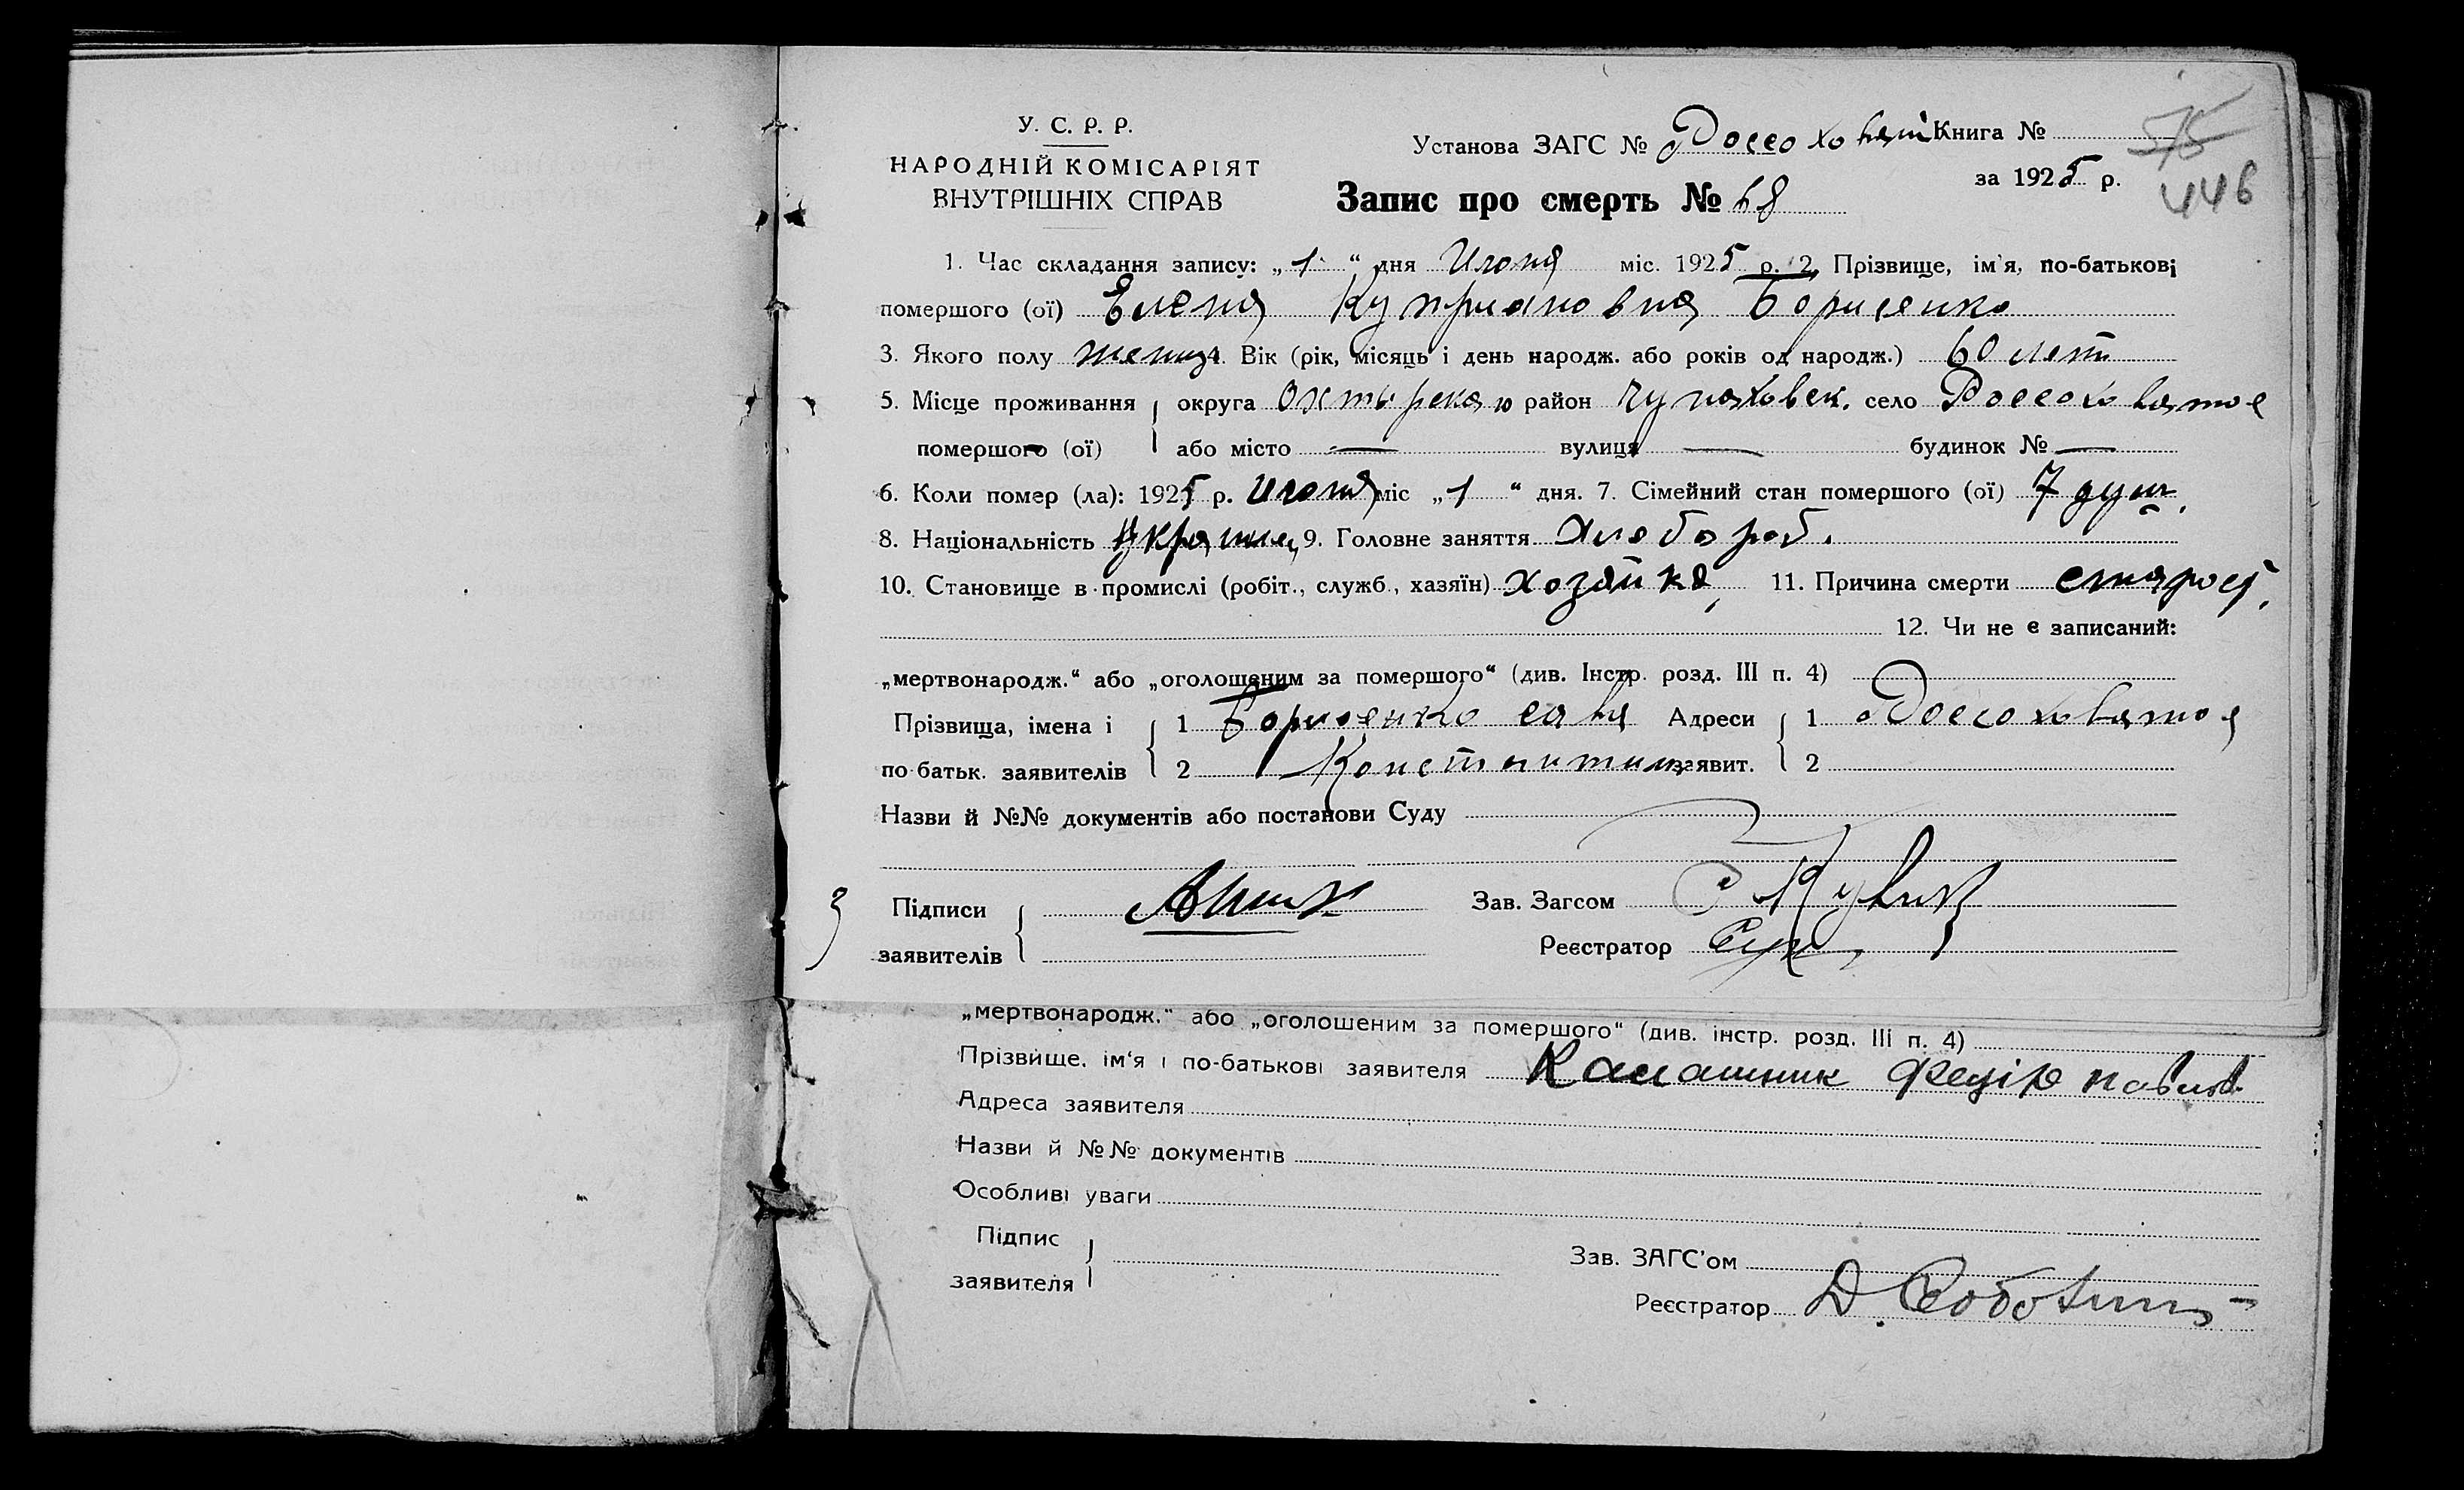 У. С. Р. Р.
НАРОДНІЙ КОМІСАРІЯТ
ВНУТРІШНІХ СПРАВ
Установа ЗАГС № Россоховат Книга № 575
446
за 1925 р.
Запис про смерть № 68
1. Час складання запису: „1“ дня Июня міс. 1925 р. 2. Прізвище, ім'я, по-батькові
помершого (ої) Елена Куприановна Борисенко
3. Якого полу женщ 4. Вік (рік, місяць і день народж. або років од народж.) 60 лет
5. Місце проживання округа Охтырская район Чупаховск. село Россоховатое
помершого (ої) або місто — вулиця — будинок № —
6. Коли помер (ла): 1925 р. Июня міс „1“ дня. 7. Сімейний стан помершого (ої) 7 душ.
8. Національність Украинц, 9. Головне заняття Хлебороб.
10. Становище в промислі (робіт., служб., хазяїн) хозяйка, 11. Причина смерти старост.
12. Чи не є записаний:
„мертвонародж.“ або „оголошеним за помершого“ (див. Інстр. розд. III п. 4)
Прізвища, імена і 1 Борисенко Сава Адреси 1 Россоховатое
по-батьк. заявителів 2 Константин заявит. 2
Назви й №№ документів або постанови Суду
Підписи Зав. Загсом
заявителів Реєстратор
„мертвонародж.“ або „оголошеним за помершого“ (див. інстр. розд. III п. 4)
Прізвище, ім'я і по-батькові заявителя Калашник Федір Павлов.
Адреса заявителя
Назви й №№ документів
Особливі уваги
Підпис
заявителя
Зав. ЗАГС'ом
Реєстратор Д.